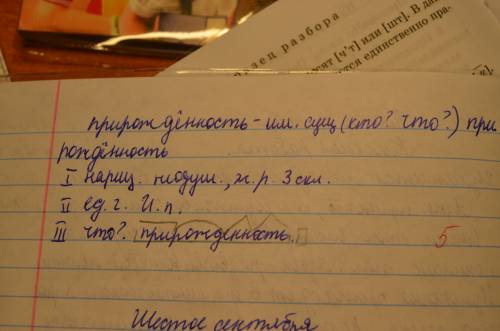 разец разбора
сят [ч’т] или [шт]. В да
ется единственно пра-
прирождённость - им. сущ (кто? что?) при
рождённость
I нариц. неодуш., ж.р. 3 скл.
II ед. г. И.п.
III что? прирожденность.
5
Шестое сентября